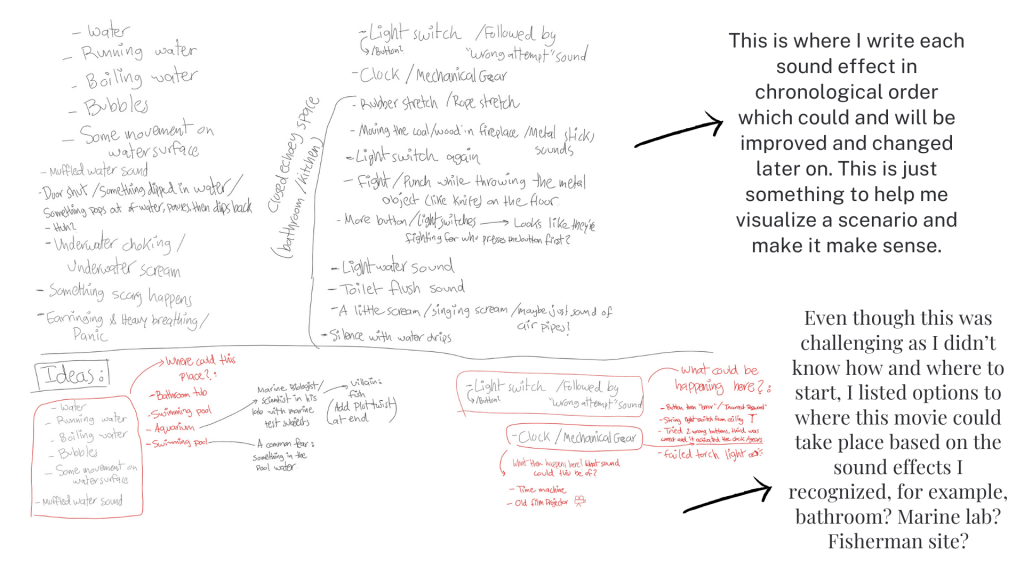 - Water
- Running water
- Boiling water
- Bubbles
- Some movement on
water surface
- Muffled water sound
- Door shut / Something dipped in water /
Something pops out of water, pauses then dips back
- Huh?
- Underwater choking /
Underwater scream
- Something scary happens
- Earringing & Heavy breathing /
Panic
Closed echoey space
(bathroom / kitchen)
- Light switch / Followed by
/Button? "wrong attempt" sound
- Clock / Mechanical Gear
- Rubber stretch / Rope stretch
- Moving the coal/wood in fireplace / Metal sticks
sounds
- Light switch again
- Fight / Punch while throwing the metal
object (like knife) on the floor
- More button / light switches → Looks like they're
fighting for who presses the button first?
- Light water sound
- Toilet flush sound
- A little scream / singing scream / maybe just sound of
air pipes!
- Silence with water drips
This is where I write each
sound effect in
chronological order
which could and will be
improved and changed
later on. This is just
something to help me
visualize a scenario and
make it make sense.
Ideas:
- Water
- Running water
- Boiling water
- Bubbles
- Some movement on
water surface
- Muffled water sound
Where could this
place?:
- Bathroom tub
- Swimming pool
- Aquarium
- Swimming pool
Marine biologist/
scientist in his
lab with marine
test subjects
- Villain:
fish
(Add plot twist)
at end
- A common fear:
something in the
Pool water
- Light switch / Followed by
/Button? "wrong attempt" sound
- Clock / Mechanical Gear
What then happens here? What sound
could this be of?
- Time machine
- Old film Projector
What could be
happening here?:
- Button then "error" /
- String light switch from ceiling
- Tried 2 wrong buttons, third was
correct and it activated the clock
- Failed torch light
Even though this was
challenging as I didn't
know how and where to
start, I listed options to
where this movie could
take place based on the
sound effects I
recognized, for example,
bathroom? Marine lab?
Fisherman site?